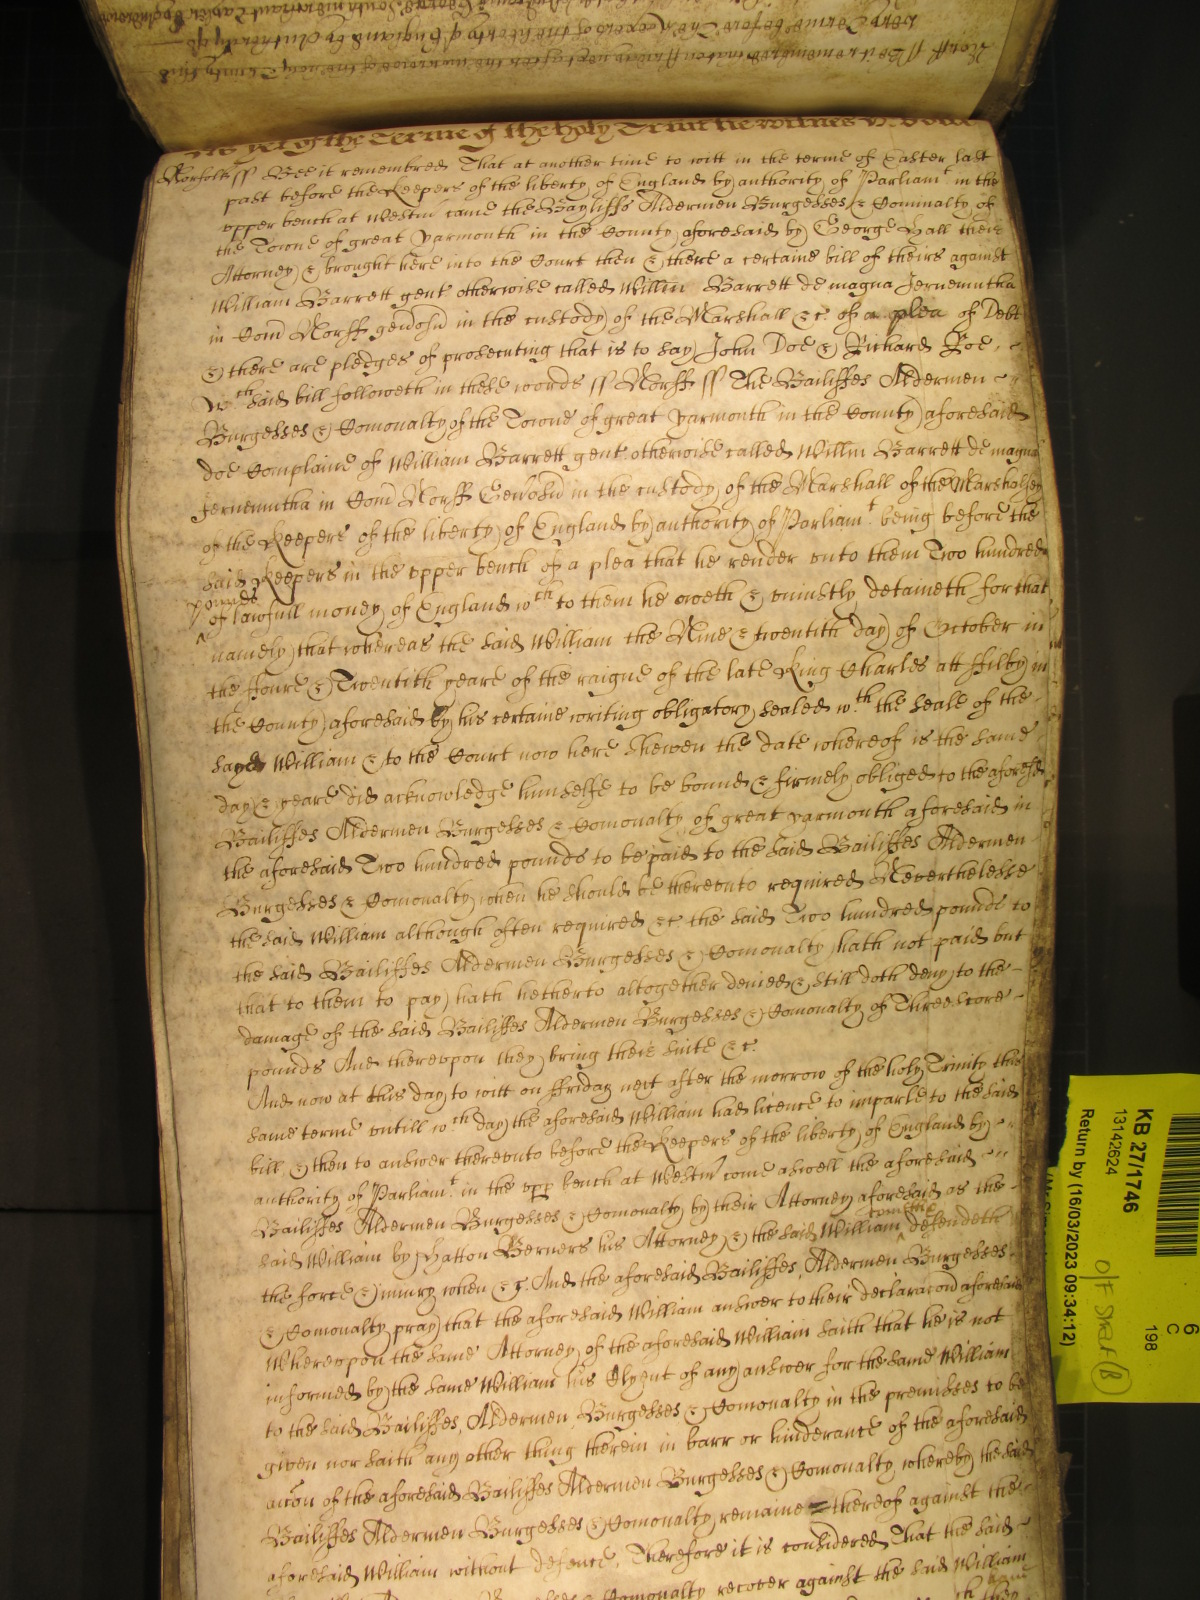 As yet of the Terme of the holy Trinitie witnes H: Rolle
Norfolk ss Bee it remembred That at another time to witt in the terme of Easter last
past before the Keepers of the liberty of England by authority of Parliamt in the
upper bench at Westm came the Bayliffs Aldermen Burgesses & Cominalty of
the Towne of great yarmouth in the County aforesaid by George Hall their
Attorney & brought here into the Court then & there a certaine bill of theirs against
William Barrett gent otherwise called Willm Barrett de magna Jernemutha
in Com Norff generosu in the custody of the Marshall &c of a plea of Debt
& there are pledges of prosecuting that is to say John Doe & Richard Roe
Wch said bill followeth in these words ss Norff ss The Bailiffes Aldermen
Burgesses & Comonalty of the Towne of great yarmouth in the County aforesaid
doe Complaine of William Barrett gent otherwise called Willm Barrett de magna
Jernemutha in Com Norff Generosu in the custody of the Marshall of the Marshalsey
of the Keepers of the liberty of England by authority of Parliamt being before the
said Keepers in the upper bench of a plea that he render unto them Two hundred
pounds
of lawfull money of England wch to them he oweth & uniustly detaineth for that
namely that whereas the said William the Nine & twentith day of October in
the ffoure & Twentith yeare of the raigne of the late King Charles att ffilby in
the County aforesaid by his certaine writing obligatory sealed wth the seale of the
sayd William & to the Court now here shewen the date whereof is the same
day & yeare did acknowledge himselfe to be bound & firmely obliged to the aforesd
Bailiffes Aldermen Burgesses & Comonalty of great yarmouth aforesaid in
the aforesaid Two hundred pounds to be paid to the said Bailiffes Aldermen
Burgesses & Comonalty when he should be thereunto required Neverthelesse
the said William although often required &c the said Two hundred pounds to
the said Bailiffes Aldermen Burgesses & Comonalty hath not paid but
that to them to pay hath hetherto altogether denied & still doth deny to the
damage of the said Bailiffes Aldermen Burgesses & Comonalty of Threescore
pounds And thereupon they bring their suite &c.
And now at this day to witt on ffriday next after the morrow of the holy Trinity this
same terme untill wch day the aforesaid William had licence to imparle to the said
bill & then to answer thereunto before the Keepers of the liberty of England by
authority of Parliamt in the upp bench at Westm come aswell the aforesaid
Bailiffes Aldermen Burgesses & Comonalty by their Attorney aforesaid as the
said William by Hatton Berners his Attorney & the said William defendeth
the force & iniury when &c. And the aforesaid Bailiffes, Aldermen Burgesses
& Comonalty pray that the aforesaid William answer to their declaracon aforesaid
Whereupon the same Attorney of the aforesaid William saith that he is not
informed by the same William his Clyent of any answer for the same William
to the said Bailiffes, Aldermen Burgesses & Comonalty in the premisses to be
given nor saith any other thing therein in barr or hinderance of the aforesaid
accon of the aforesaid Bailiffes Aldermen Burgesses & Comonalty whereby the said
Bailiffes Aldermen Burgesses & Comonalty remaine thereof against the
aforesaid William without defence, Therefore it is considered That the said
Comonalty recover against the said William
KB 27/1746
13142624
Return by (16/03/2023 09:34:12)
6
C
198